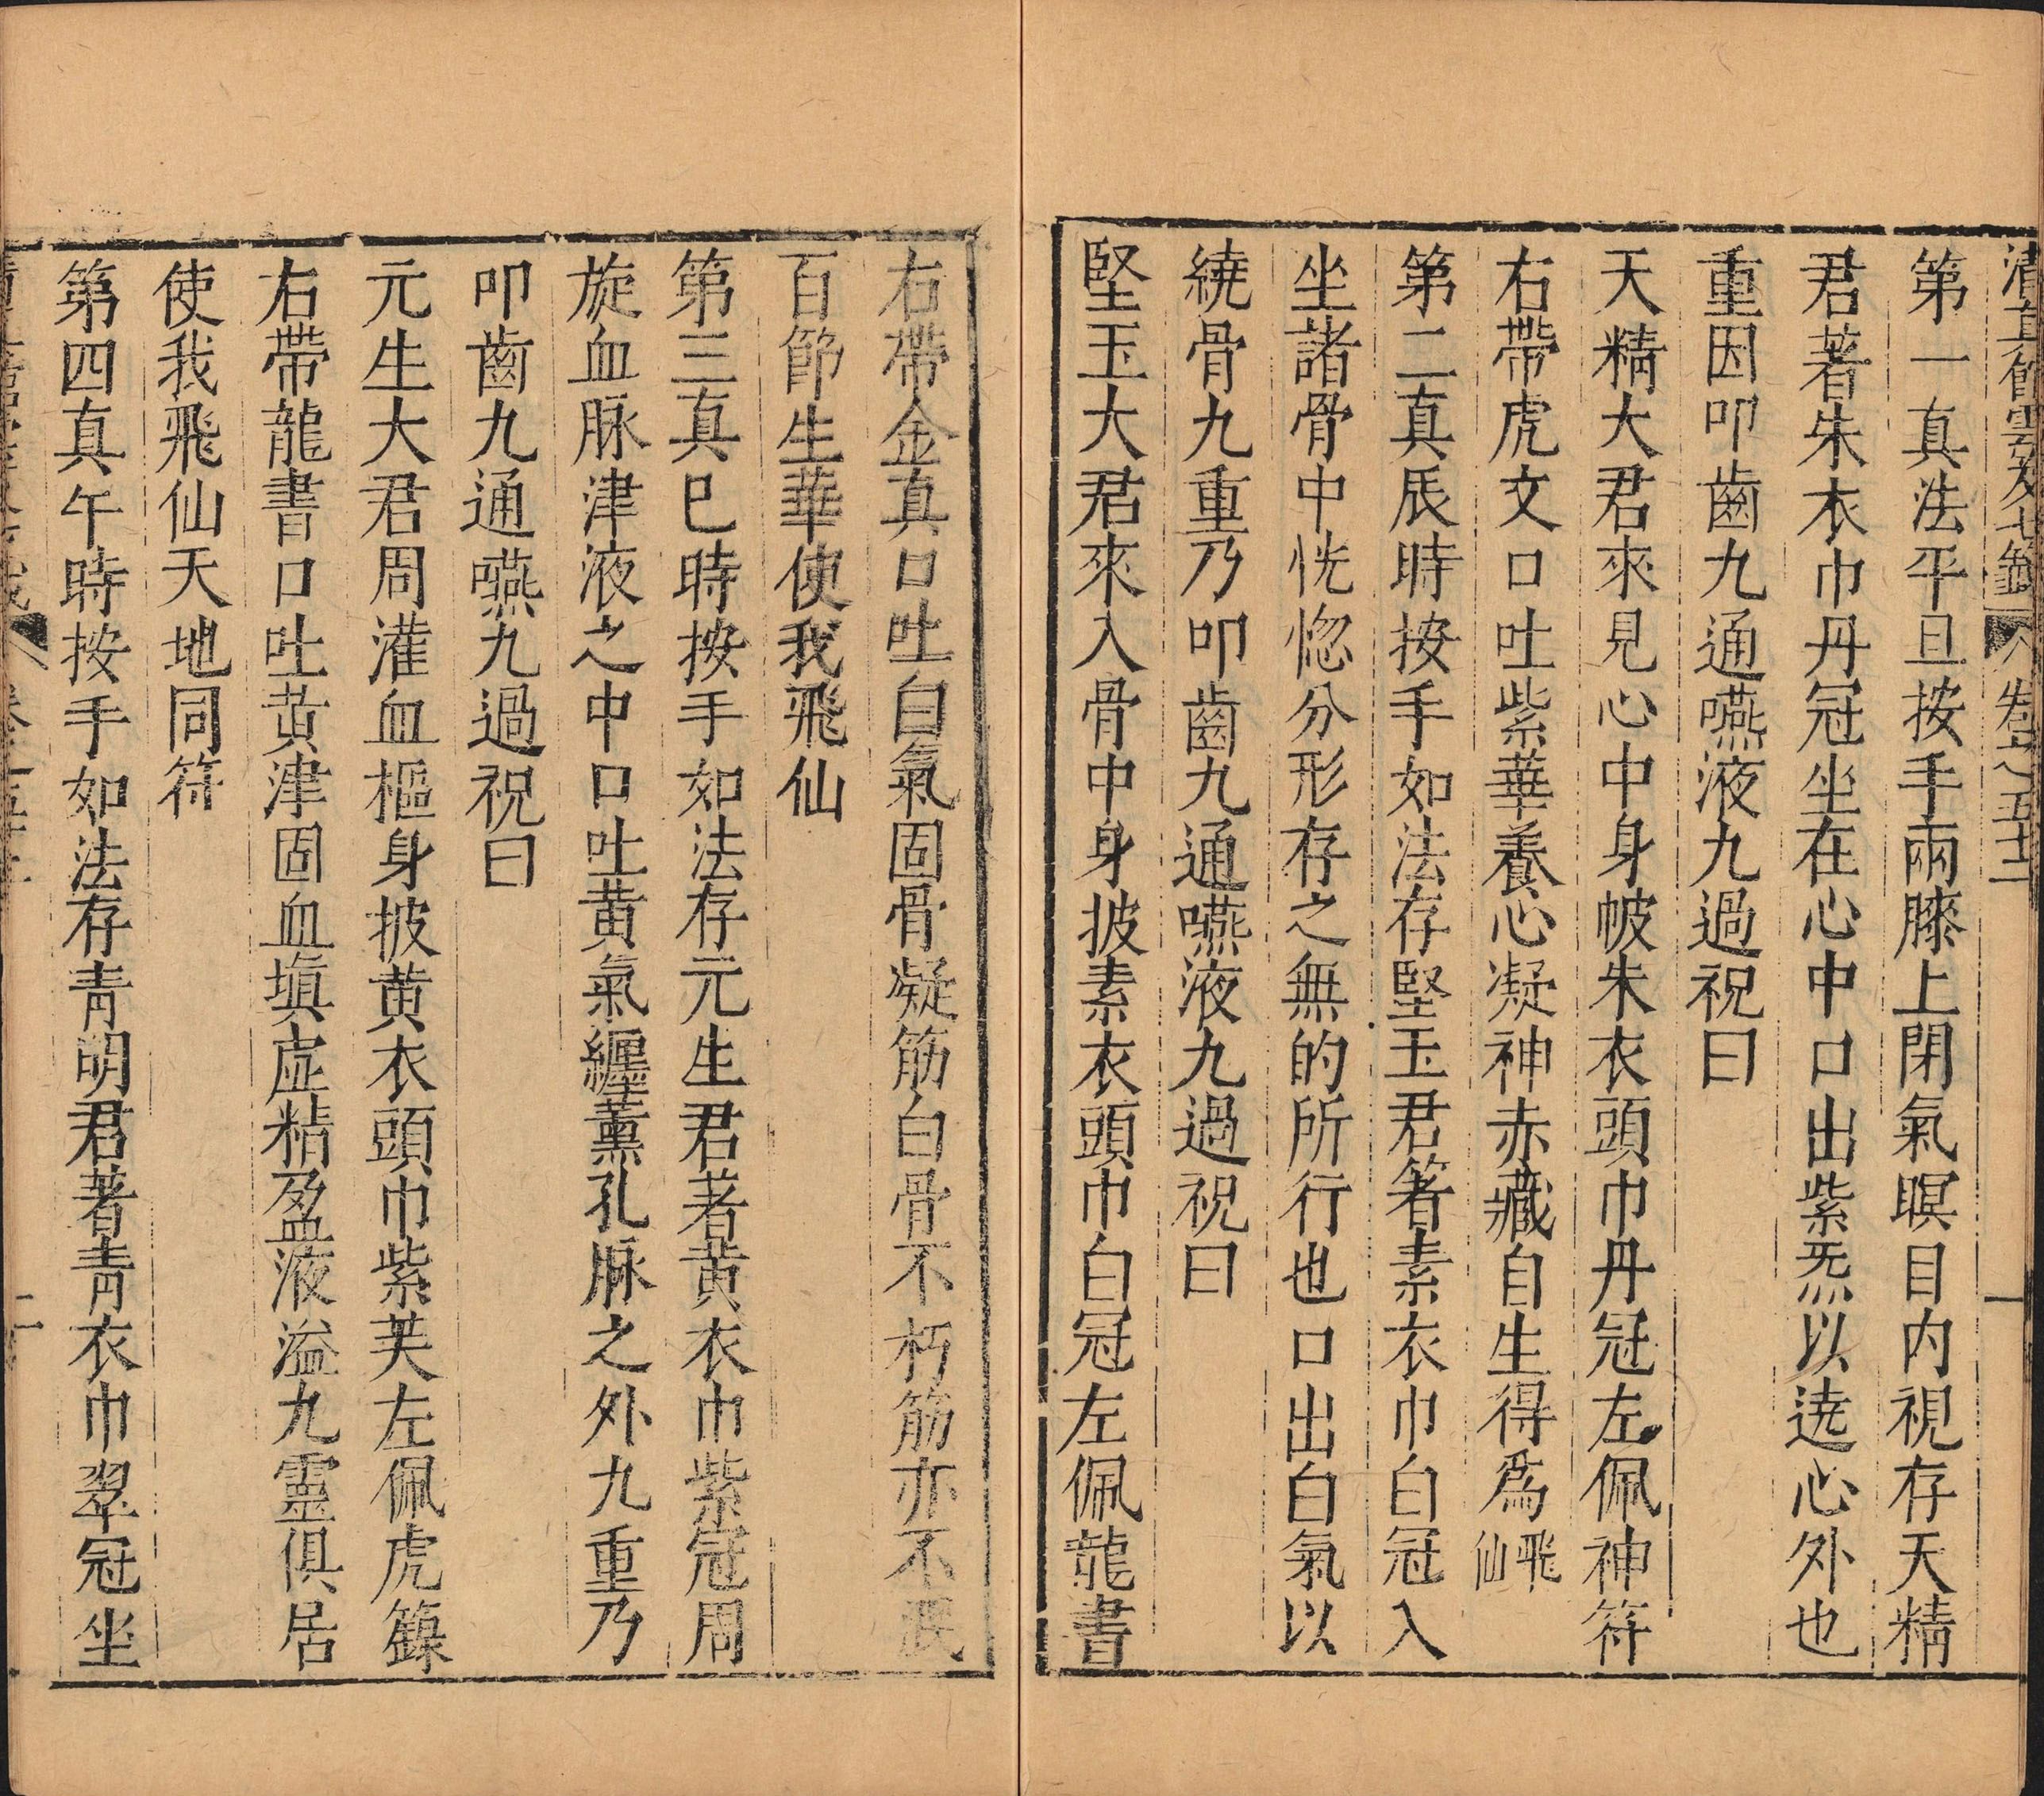 清真館雲笈七籤 卷之五十二 一
第一真法平旦按手兩膝上閉氣瞑目内視存天精
君著朱衣巾丹冠坐在心中口出紫炁以遶心外也
重因叩齒九通嚥液九過祝曰
天精大君來見心中身帔朱衣頭巾丹冠左佩神符
右帶虎文口吐紫華養心凝神赤藏自生得爲飛仙
第二真辰時按手如法存堅玉君著素衣巾白冠入
坐諸骨中恍惚分形存之無的所行也口出白氣以
繞骨九重乃叩齒九通嚥液九過祝曰
堅玉大君來入骨中身披素衣頭巾白冠左佩龍書
右帶金真口吐白氣固骨凝筋白骨不朽筋亦不泯
百節生華使我飛仙
第三真巳時按手如法存元生君著黄衣巾紫冠周
旋血脉津液之中口吐黄氣纒薰孔脉之外九重乃
叩齒九通嚥九過祝曰
元生大君周灌血樞身披黄衣頭巾紫芙左佩虎籙
右帶龍書口吐黄津固血塡虛精盈液溢九靈俱居
使我飛仙天地同符
第四真午時按手如法存青明君著青衣巾翠冠坐
二